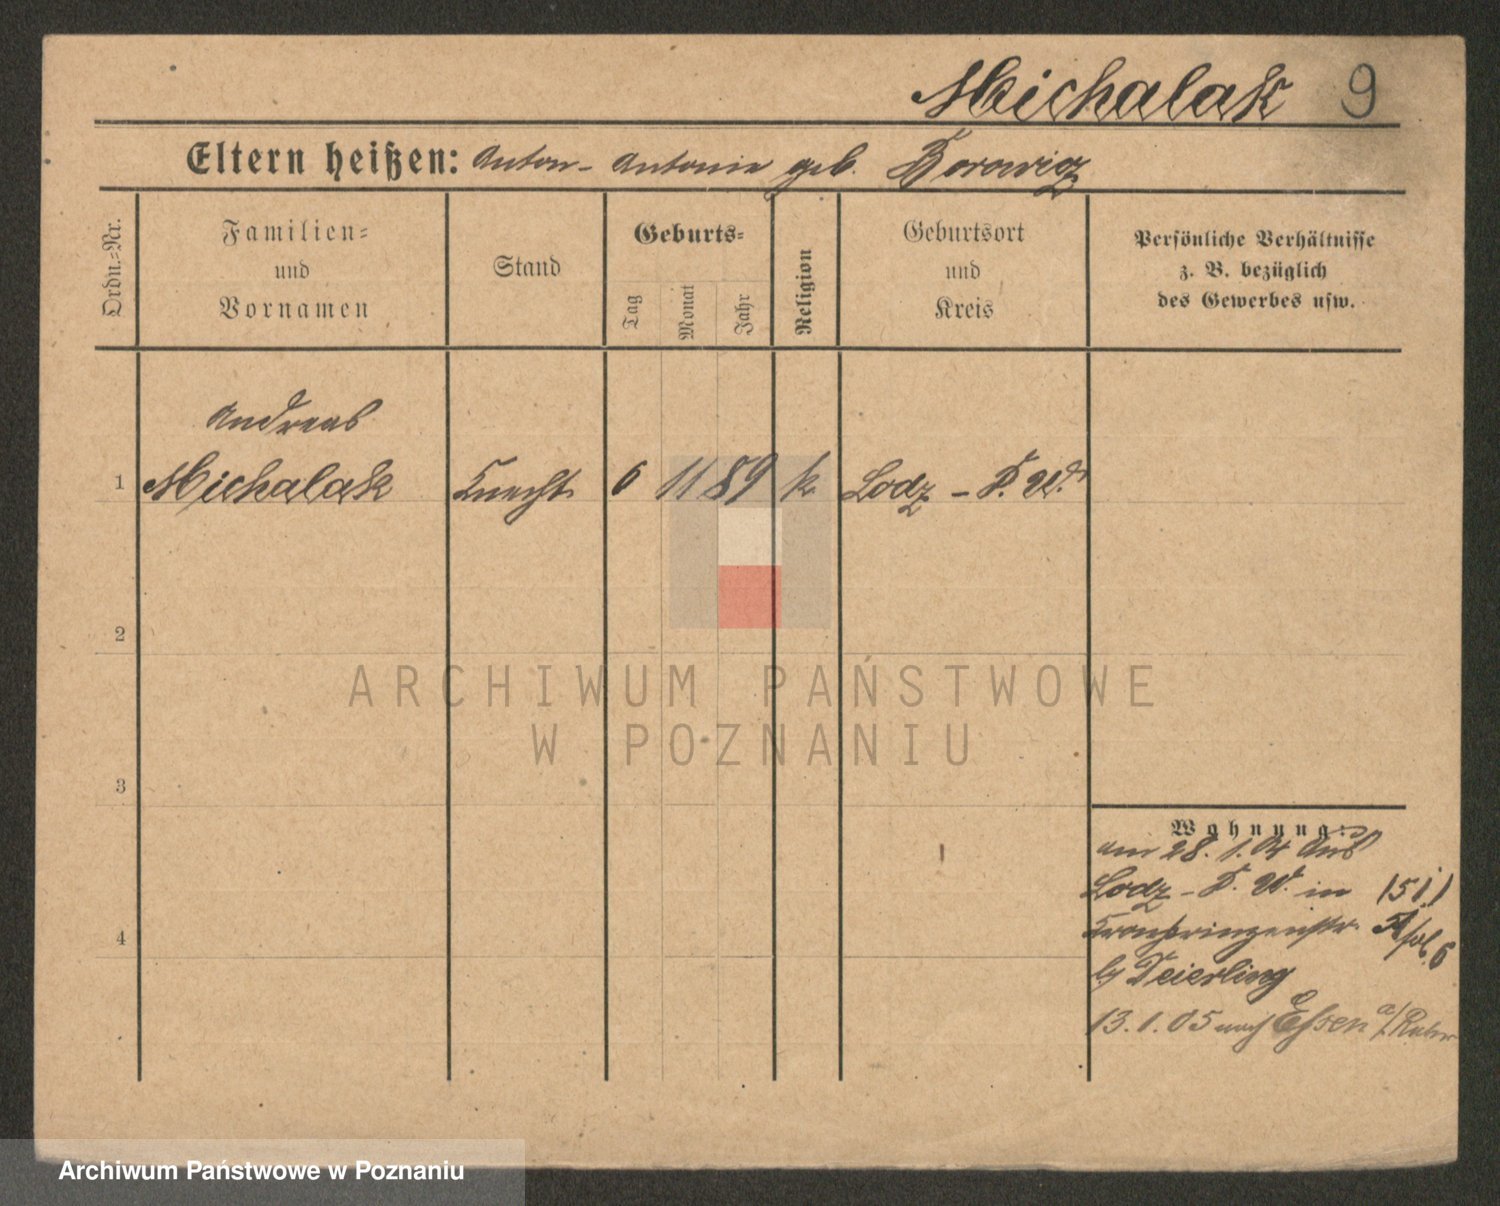 Michalak 9
Eltern heißen: Anton - Antonie geb. Borowicz
Ordn.-Nr.
Familien-
und
Vornamen
Stand
Geburts-
Tag
Monat
Jahr
Religion
Geburtsort
und
Kreis
Persönliche Verhältnisse
z. B. bezüglich
des Gewerbes usw.
Andreas
1 Michalak Knecht 6 11 89 k. Lodz - P. W.
2
3
4
Wohnung:
am 28. 1. 04 aus
Lodz - P. W. in 151
Kronprinzenstr.
b/ Deierling
13. 1. 05 nach Essen a/Ruhr
ARCHIWUM PAŃSTWOWE
W POZNANIU
Archiwum Państwowe w Poznaniu